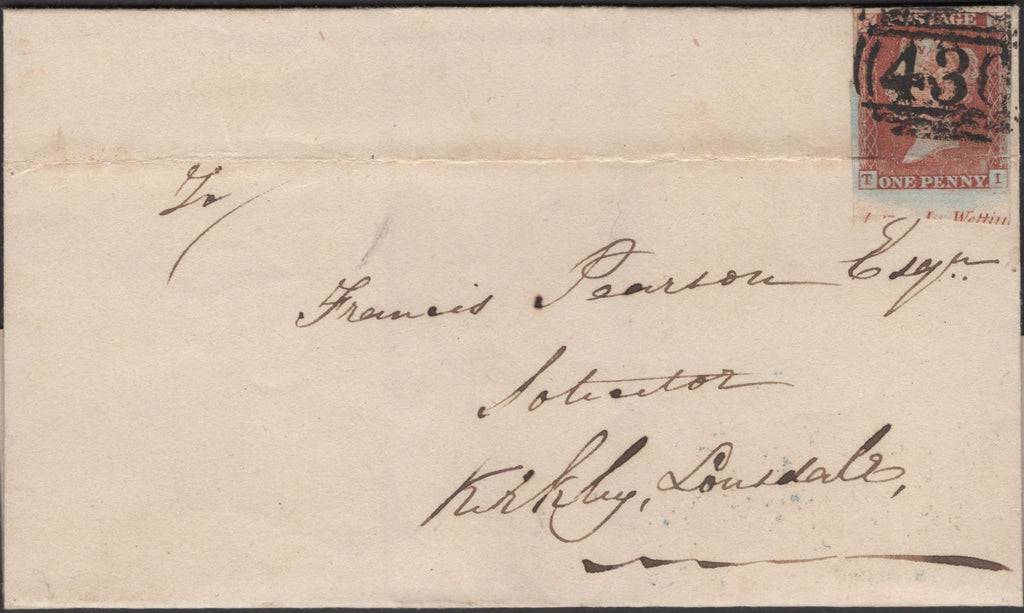 POSTAGE
430
T ONE PENNY I
In Wettin
To/
Francis Pearson Esqr.
Solicitor
Kirkby, Lonsdale,